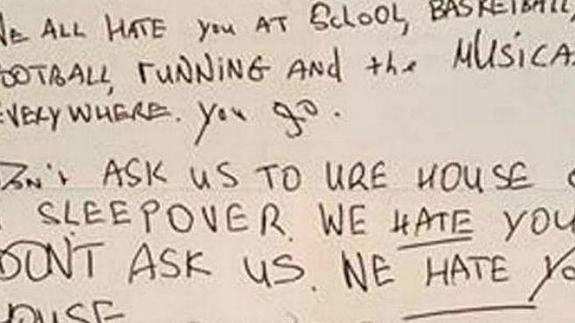 WE ALL HATE you AT SCHOOL, BASKETBALL,
FOOTBALL, rUNNING AND the MUSICA
EVERYWHERE. you go.
DON'T ASK US TO URE HOUSE
SLEEPOVER. WE HATE YOU
DONT ASK US. WE HATE yo
HOUSE